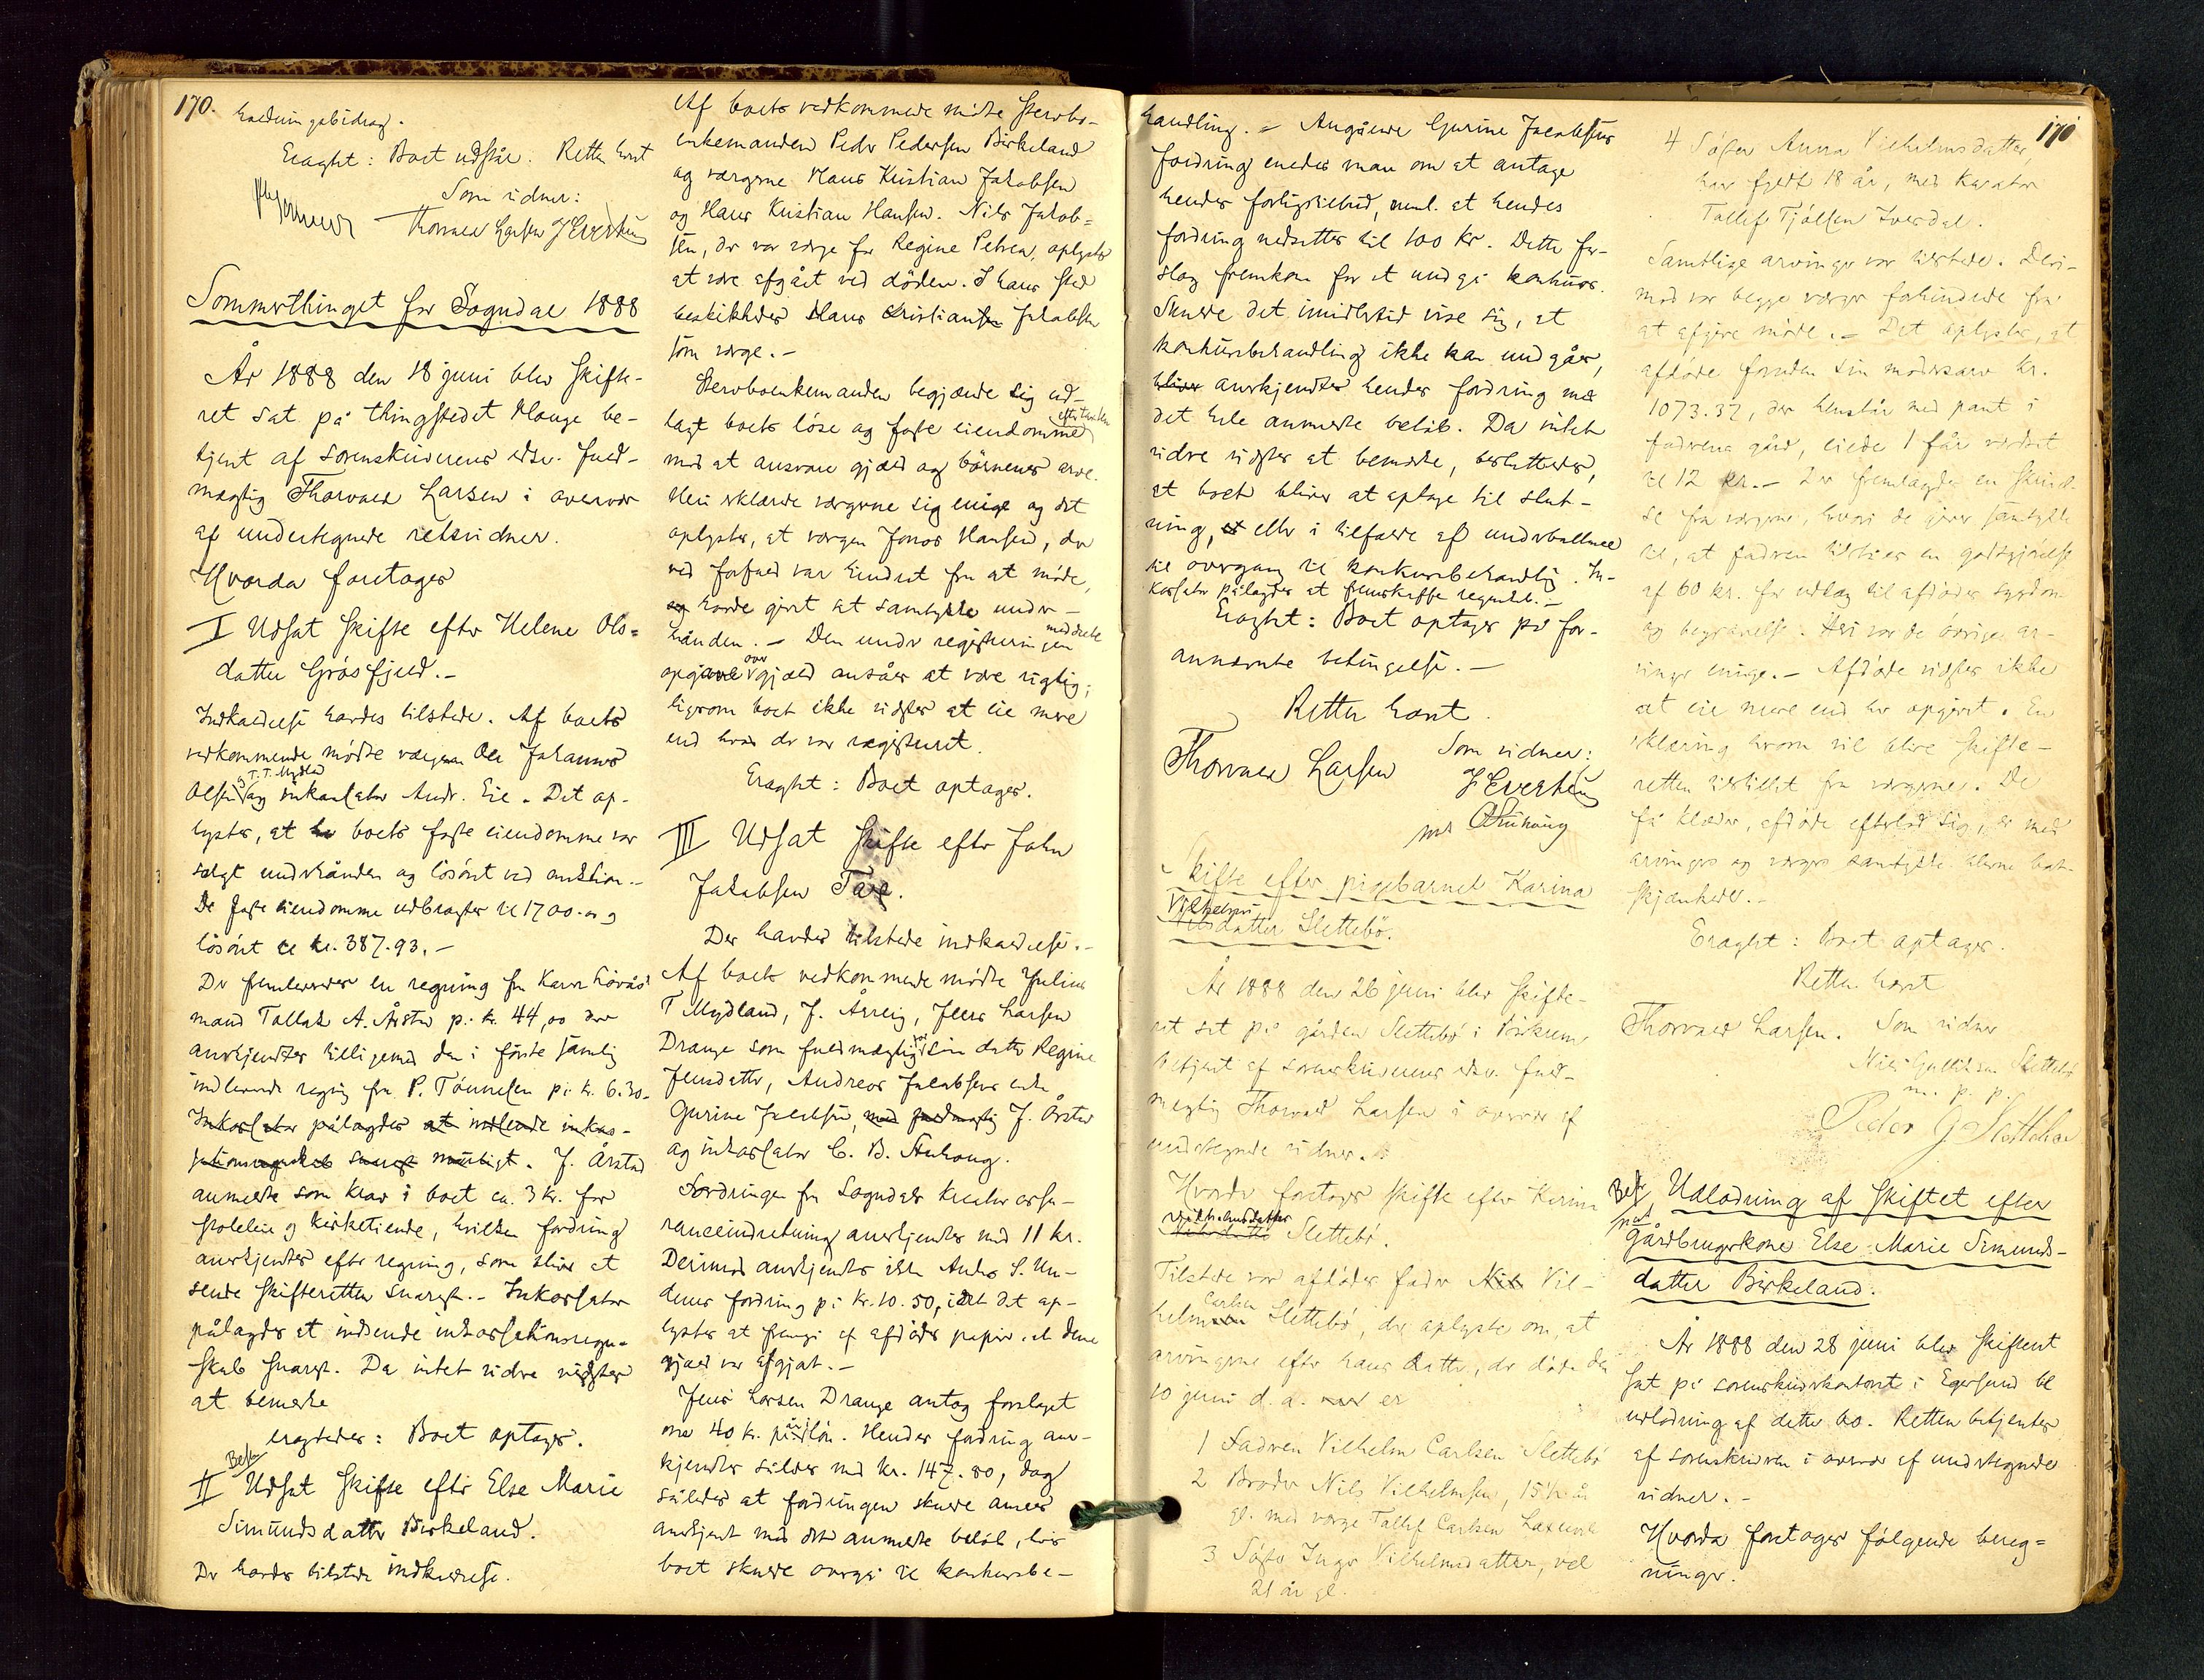 170.
Eragtet: Boet udstår. Retten hævet
Som vidner:
Thorvald Larsen J Evertsen
Sommerthinget for Sogndal 1888
År 1888 den 18 juni blev skifte-
ret sat på thingstedet Hauge be-
tjent af sorenskriverens edsv. fuld-
mægtig Thorvald Larsen i overvær
af undertegnede retsvidner.
Hvorda foretoges
I Udsat skifte efter Helene Ols-
datter Gråsfjeld.-
Indkaldelse havdes tilstede. Af boets
vedkommende mødte værgen Ole Johannes
Olsen og T. T. Mydland og inkassator Andr. Eie. Det op-
lystes, at boets faste eiendomme var
solgt underhånden og løsøret ved auktion.-
De faste eiendomme udbragtes til 1700. og
løsøret til kr. 387.93.-
Der fremlevertes en regning fra
mand Tallak A. Årstad på kr. 44,00 der
anerkjendtes tilligemed den i første samling
indleverede regning fra P. Tønnesen på kr. 6.30.
Inkassator pålagdes at indsende inkas-
sationsregnskab snarest muligt. J. Årstad
anmeldte som krav i boet ca. 3 kr. for
stoleleie og kirketiende, hvilken fordring
anerkjendtes efter regning, som bliver at
sende skifteretten snarest.- Inkassator
pålagdes at indsende inkassationsregn-
skab snarest. Da intet videre vidstes
at bemerke
eragtedes: Boet optages.
II Udsat skifte efter Else Marie
Simundsdatter Birkeland.
Der havdes tilstede indkaldelse.
Af boets vedkommende mødte stervbo-
enkemanden Peder Pedersen Birkeland
og værgerne Hans Kristian Jakobsen
og Hans Kristian Hansen. Nils Jakob-
sen, der var værge for Regine Petrea, oplystes
at være afgået ved døden. I hans sted
beskikkedes Hans Kristian Jakobsen
som værge.-
Stervboenkemanden begjærede sig ud-
lagt boets løse og faste eiendomme efter taksten
mod at ansvare gjæld og børnenes arv.
Heri erklærede værgerne sig enige og det
oplystes, at værgen Jonas Hansen, der
ved forfald var hindret fra at møde,
og havde givet sit samtykke under-
hånden.- Den under registreringen meddelte
opgave over gjæld ansåes at være rigtig;
ligesom boet ikke vidstes at eie mere
end hvad der var registreret.
Eragtet: Boet optages.
III Udsat skifte efter John
Jakobsen
Der havdes tilstede indkaldelse.-
Af boets vedkommende mødte Julius
T Mydland, J. Årreig, Jens Larsen
Drange som fuldmægtig for sin datter Regine
Jensdatter, Andreas Jakobsens enke
Gurine Jakobsen, med fuldmægtig J. Årstad
og inkassator C. B. Stuhaug.
Fordringen fra Sogndals Kreaturassu-
ranceindretning anerkjendtes med 11 kr.
Derimod anerkjendtes ikke Anders S. Un-
dems fordring på kr. 10.50, idet det op-
lystes at fremgå af afdødes papirer at denne
gjæld var afgjort.-
Jens Larsen Drange antog forslaget
om 40 kr. i årsløn. Hendes fordring aner-
kjendtes således med kr. 147.80, dog
således at fordringen skulde ansees
anerkjent med det anmeldte beløb, hvis
boet skulde overgå til konkursbe-
handling.- Angående Gurine Jakobsens
fordring enedes man om at antage
hendes forligstilbud, neml. at hendes
fordring nedsættes til 100 Kr. Dette for-
slag fremkom for at undgå konkurs.
Skulde det imidlertid vise sig, at
konkursbehandling ikke kan undgåes,
bliver anerkjendtes hendes fordring med
det hele anmeldte beløb. Da intet
videre vidstes at bemerke, besluttedes,
at boet bliver at optage til slut-
ning, eller i tilfælde af underballance
til overgang til konkursbehandling. In-
kassator pålagdes at fremskaffe regnskab.-
Eragtet: Boet optages på for-
annævnte betingelse.-
Retten hævet.
Thorvald Larsen Som vidner:
J Evertsen
Skifte efter pigebarnet Karina
Vilhelmsdatter Slettebø.
År 1888 den 26 juni blev skifte-
ret sat på gården Slettebø i Birkrem,
betjent af sorenskriverens edsv. fuld-
mægtig Thorvald Larsen i overvær af
undertegnede vidner.
Hvorda foretoges skifte efter Karina
Vilhelmsdatter Slettebø.
Tilstede var afdødes fader Nils Vil-
helm Carlsen Slettebø, der oplyste om, at
arvingerne efter hans datter, der døde den
10 juni d. a. er
1 Faderen Vilhelm Carlsen Slettebø
2 Broder Nils Vilhelmsen, 15½ år
gl. med værge Tallef Carlsen
3 Søster Inger Vilhelmsdatter, vel
21 år gl.
170
4 Søster Anna Vilhelmsdatter,
har fyldt 18 år, med Kurator
Tallef Tjølsen Iversdal.
Samtlige arvinger var tilstede. Deri-
mod var begge værger forhindrede fra
at afgive møde.- Det oplystes, at
afdøde foruden sin mødrearv kr.
1073.32, der henstår med pant i
faderens gård, eiede 1 får værdsat
til 12 kr.- Der fremlagdes en skrivel-
se fra værgerne, hvori de giver samtykke
til, at faderen tilståes en godtgjørelse
af 60 kr. for udlæg til afdødes sygdom
og begravelse. Heri var de øvrige ar-
vinger enige.- Afdøde vidstes ikke
at eie mere end her opgivet. En
erklæring herom vil blive skifte-
retten tilstillet fra værgerne. De
få klæder, afdøde efterlod sig, er med
arvingers og værgers samtykke blevne bort-
skjænkede.-
Eragtet: Boet optages.
Retten hævet
Thorvald Larsen. Som vidner
Nils Gulliksen Slettebø
m. p. p.
Peder G Slettebø
Udlodning af skiftet efter
Gårdbrugerkone Else Marie Simunds-
datter Birkeland.
År 1888 den 28 juni blev skifteret
sat på sorenskriverkontoret i Egersund til
udlodning af dette bo. Retten betjentes
af sorenskriveren i overvær af undertegnede
vidner.-
Hvorda foretoges følgende bereg-
ninger.